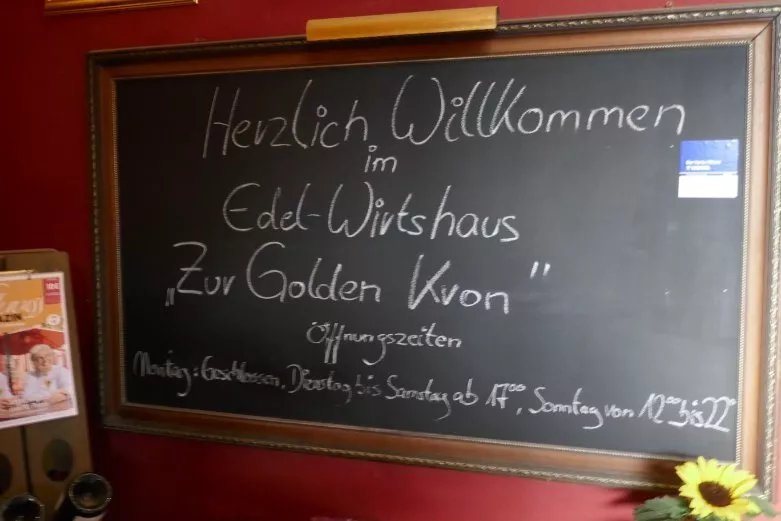 Herzlich Willkommen
im
Edel-Wirtshaus
„Zur Golden Kron"
Öffnungszeiten
Montag: Geschlossen, Dienstag bis Samstag ab 17⁰⁰, Sonntag von 12⁰⁰ bis 22⁰